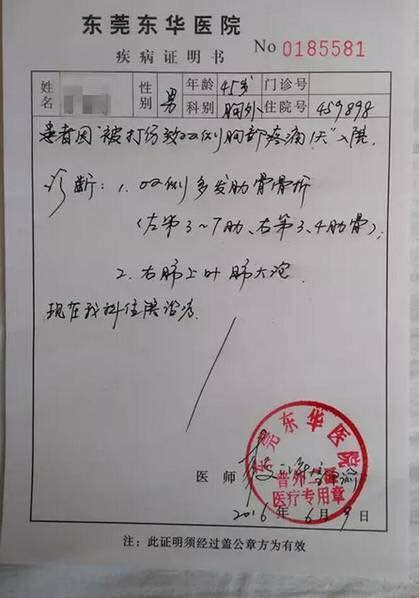 东莞东华医院
疾病证明书
No 0185581
姓名 性别 男 年龄 45岁 门诊号
科别 胸外 住院号 459898
患者因“被打伤致双侧胸部疼痛1天”入院.
诊断：1. 双侧多发肋骨骨折
(左第3~7肋、右第3、4肋骨).
2. 右肺上叶肺大泡
现在我科住院治疗.
东莞东华医院
医疗专用章
医师
2016年6月9日
注：此证明须经过盖公章方为有效